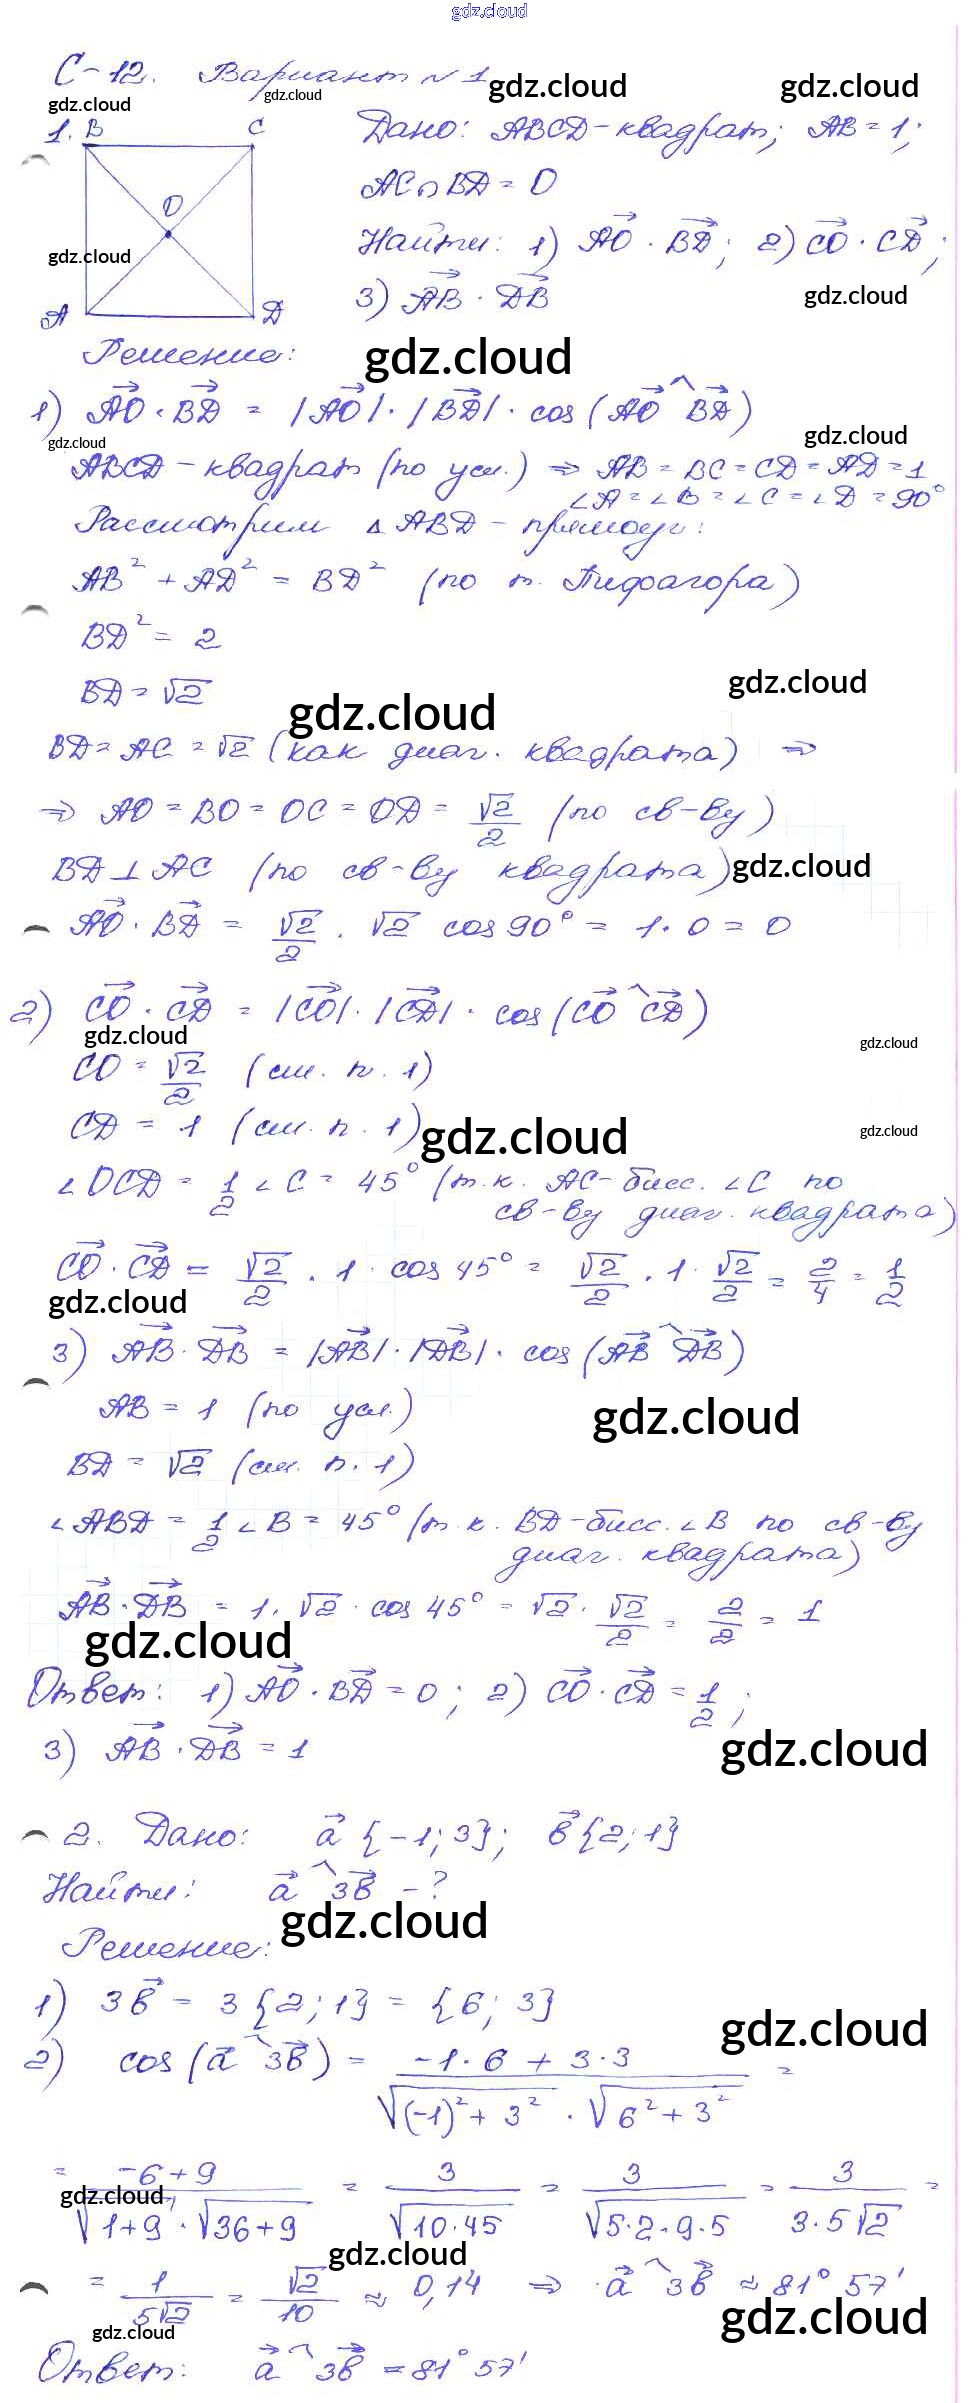 gdz.cloud
С-12. Вариант №1
gdz.cloud gdz.cloud gdz.cloud gdz.cloud
1. B C
O
A D
Дано: ABCD-квадрат; AB=1;
AC∩BD=O
Найти: 1) AO⃗ · BD⃗; 2) CO⃗ · CD⃗;
gdz.cloud
3) AB⃗ · DB⃗
gdz.cloud
Решение:
gdz.cloud
1) AO⃗ · BD⃗ = |AO⃗| · |BD⃗| · cos(AO⃗ ^ BD⃗)
gdz.cloud gdz.cloud
ABCD-квадрат (по усл.) ⇒ AB=BC=CD=AD=1
∠A=∠B=∠C=∠D=90°
Рассмотрим △ABD-прямоуг:
AB² + AD² = BD² (по т. Пифагора)
BD² = 2
BD = √2
gdz.cloud gdz.cloud
BD=AC=√2 (как диаг. квадрата) ⇒
⇒ AO=BO=OC=OD= √2/2 (по св-ву)
BD⊥AC (по св-ву квадрата)
gdz.cloud
AO⃗ · BD⃗ = √2/2 · √2 cos90° = 1·0 = 0
2) CO⃗ · CD⃗ = |CO⃗| · |CD⃗| · cos(CO⃗ ^ CD⃗)
gdz.cloud gdz.cloud
CO = √2/2 (см. п. 1)
CD = 1 (см. п. 1)
gdz.cloud gdz.cloud
∠OCD = 1/2 ∠C = 45° (т.к. AC-бисс. ∠C по
св-ву диаг. квадрата)
CO⃗ · CD⃗ = √2/2 · 1 · cos45° = √2/2 · 1 · √2/2 = 2/4 = 1/2
gdz.cloud
3) AB⃗ · DB⃗ = |AB⃗| · |DB⃗| · cos(AB⃗ ^ DB⃗)
AB = 1 (по усл.)
gdz.cloud
BD = √2 (см. п. 1)
∠ABD = 1/2 ∠B = 45° (т.к. BD-бисс. ∠B по св-ву
диаг. квадрата)
AB⃗ · DB⃗ = 1 · √2 · cos45° = √2 · √2/2 = 2/2 = 1
gdz.cloud
Ответ: 1) AO⃗ · BD⃗ = 0; 2) CO⃗ · CD⃗ = 1/2;
3) AB⃗ · DB⃗ = 1
gdz.cloud
2. Дано: a⃗ {-1; 3}; b⃗ {2; 1}
Найти: a⃗ ^ 3b⃗ - ?
gdz.cloud
Решение:
1) 3b⃗ = 3{2; 1} = {6; 3}
gdz.cloud
2) cos(a⃗ ^ 3b⃗) = (-1·6 + 3·3)/(√((-1)²+3²) · √(6²+3²)) =
= (-6+9)/(√(1+9) · √(36+9)) = 3/√(10·45) = 3/√(5·2·9·5) = 3/(3·5√2) =
gdz.cloud
gdz.cloud
= 1/(5√2) = √2/10 ≈ 0,14 ⇒ a⃗ ^ 3b⃗ ≈ 81°57'
gdz.cloud gdz.cloud
Ответ: a⃗ ^ 3b⃗ = 81°57'